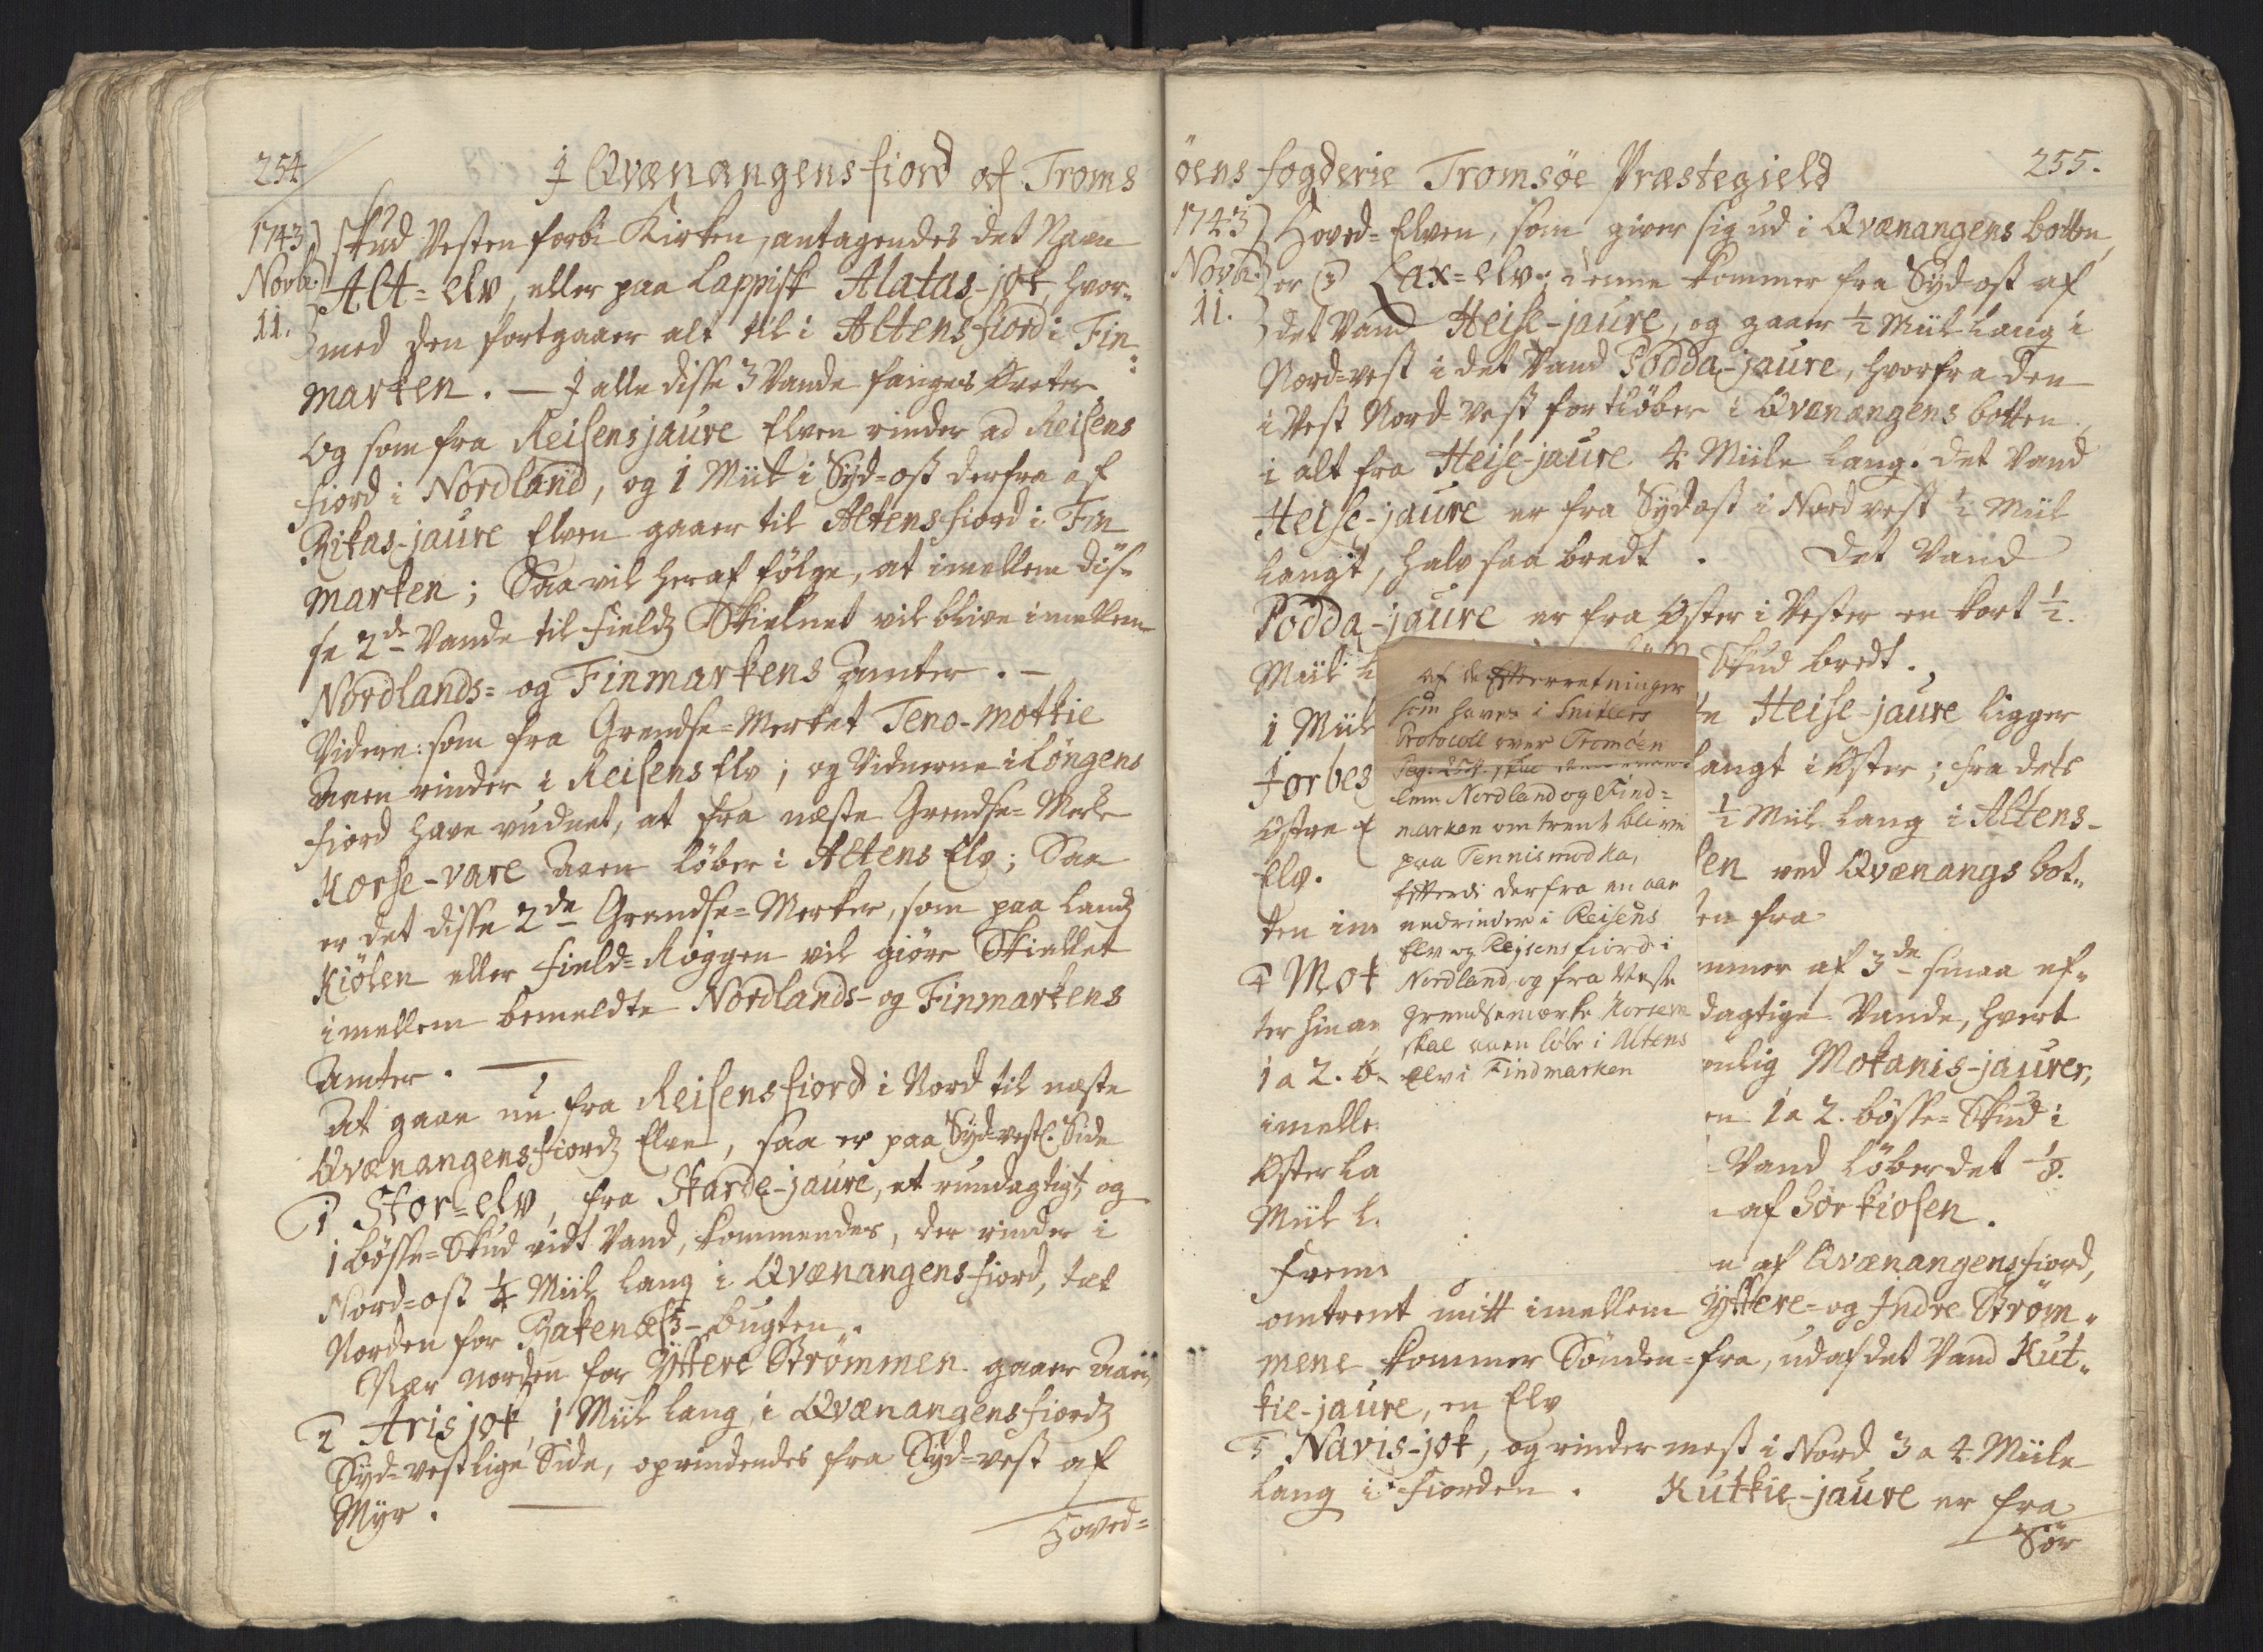 254
I Qvænangens fiord af Troms
1743
Novbr.
11.
skud Vesten forbi Kirken, antagendes det Navn
Alt=elv, eller paa Lappisk Alatas-jok, hvor„
med den fortgaaer alt til i Altens fiord i Fin„
marken. — I alle disse 3 Vande fanges Ørreter,
Og som fra Reisensjaure Elven rinder ad Reisens
fiord i Nordland, og 1 Miil i Syd=ost derfra af
Zikas-jaure Elven gaaer til Altens fiord i Fin
marken; Saa vil heraf følge, at imellem diss„
se 2de Vande til Fields Skielnet vil blive imellem
Nordlands= og Finmarkens Amter. —
Videre: som fra Grendse=Merket Teno-mottie
Aaen rinder i Reisens Elv; og Vidnerne i Löngens
fiord have vudnet, at fra næste Grendse=Merke
Korse-vare Aaen löber i Altens Elv; Saa
er det disse 2de Grendse=Merker, som paa Lands
Kiölen eller Field=Röggen vil giöre Skiellet
imellem bemeldte Nordlands- og Finmarkens
Amter. —
At gaae nu fra Reisens fiord i Nord til næste
Qvænangens fiords Elve, saa er paa Syd-vestl. Side
1 Stor=elv, fra Skarde-jaure, et rundagtigt, og
1 bösse=Skud vidt Vand, kommendes, der rinder i
Nord=ost ¼ Miil lang i Qvænangens fiord, tæt
Norden for Bakenæss-bugten.
Nær Norden for Yttere Strömmen gaaer Aaen
2 Arisjok, 1 Miil lang, i Qvænangens fiords
Syd=vestlige Side, oprindendes fra Syd=vest af
Myr. —
Hoved=
öens fogderie Tromsöe Præstegield
255.
1743
Novbr.
11.
Hoved=Elven, som giver sig ud i Qvænangens botten,
er 3 Lax=elv; denne kommer fra Syd-ost af
det Vand Heise-jaure, og gaaer ½ Miil lang i
Nord=vest i det Vand Podda-jaure, hvorfra den
i Vest Nord-Vest fortlöber i Qvænangens botten,
i alt fra Heise-jaure 4 Miile lang. Det Vand
Heise-jaure er fra Sydost i Nordvest ½ Miil
langt, halv saa bredt. Det Vand
Podda-jaure er fra Öster i Vester en kort ½.
Miil Skud bredt.
1 Miil Heise-jaure ligger
Forbes langt i Öster; fra dets
Östre ½ Miil lang i Altens-
Elv. ved Qvænangs bot„
ten fra
4 Mot af 3de smaa ef„
ter hinan dagtige Vande, hvert
1 a 2. b Motanis-jaurer,
imelle 1 a 2. bösse=Skud i
Öster La Vand löber det ⅛.
Miil l. af Sörkiosen.
Frem af Qvænangens fiord,
omtrent mitt imellem Yttere= og Indre Ström„
mene kommer Sönden=fra, ud af det Vand Kut„
kie-jaure, en Elv
5 Navis-jok, og rinder mest i Nord 3 a 4 Miile
lang i fiorden. Kutkie-jaure er fra
Sör
af de Efterretninger
som haves i Snitlers
Protocoll over Tromöen
Pag: 254. skal
lem Nordland og Find=
marken omtrent blive
paa Tennismodka,
Efterdi derfra en aae
nedrinder i Reisens
Elv og Reisens fiord i
Nordland, og fra Neste
grendsemerke Korseva
skal aaen löbe i Altens
Elv i Findmarken